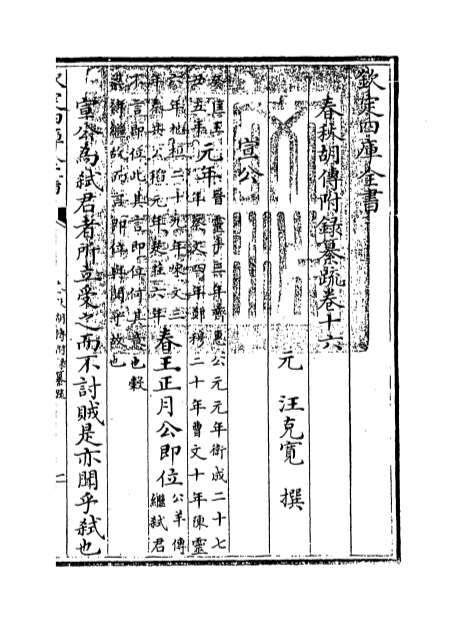 欽定四庫全書
春秋胡傳附録纂疏卷十六
元 汪克寬 撰
宣公
癸丑匡王五年 元年 晉靈十三年齊惠公元元年衛成二十七
年蔡文四年鄭穆二十年曹文十年陳靈
六年杞桓二十九年宋文三
年秦共公稻元年楚莊六年 春王正月公即位 公羊傳繼弒君
不言即位此其言即位何其意也穀
梁傳繼故而言即位與聞乎故也
宣公為弒君者所立受之而不討賊是亦聞乎弒也
欽定四庫全書 春秋胡傳附錄纂疏 一